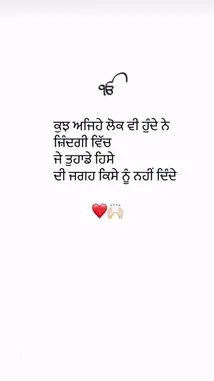 ੴ
ਕੁਝ ਅਜਿਹੇ ਲੋਕ ਵੀ ਹੁੰਦੇ ਨੇ
ਜ਼ਿੰਦਗੀ ਵਿੱਚ
ਜੇ ਤੁਹਾਡੇ ਹਿਸੇ
ਦੀ ਜਗਹ ਕਿਸੇ ਨੂੰ ਨਹੀਂ ਦਿੰਦੇ
❤️🙌🏻